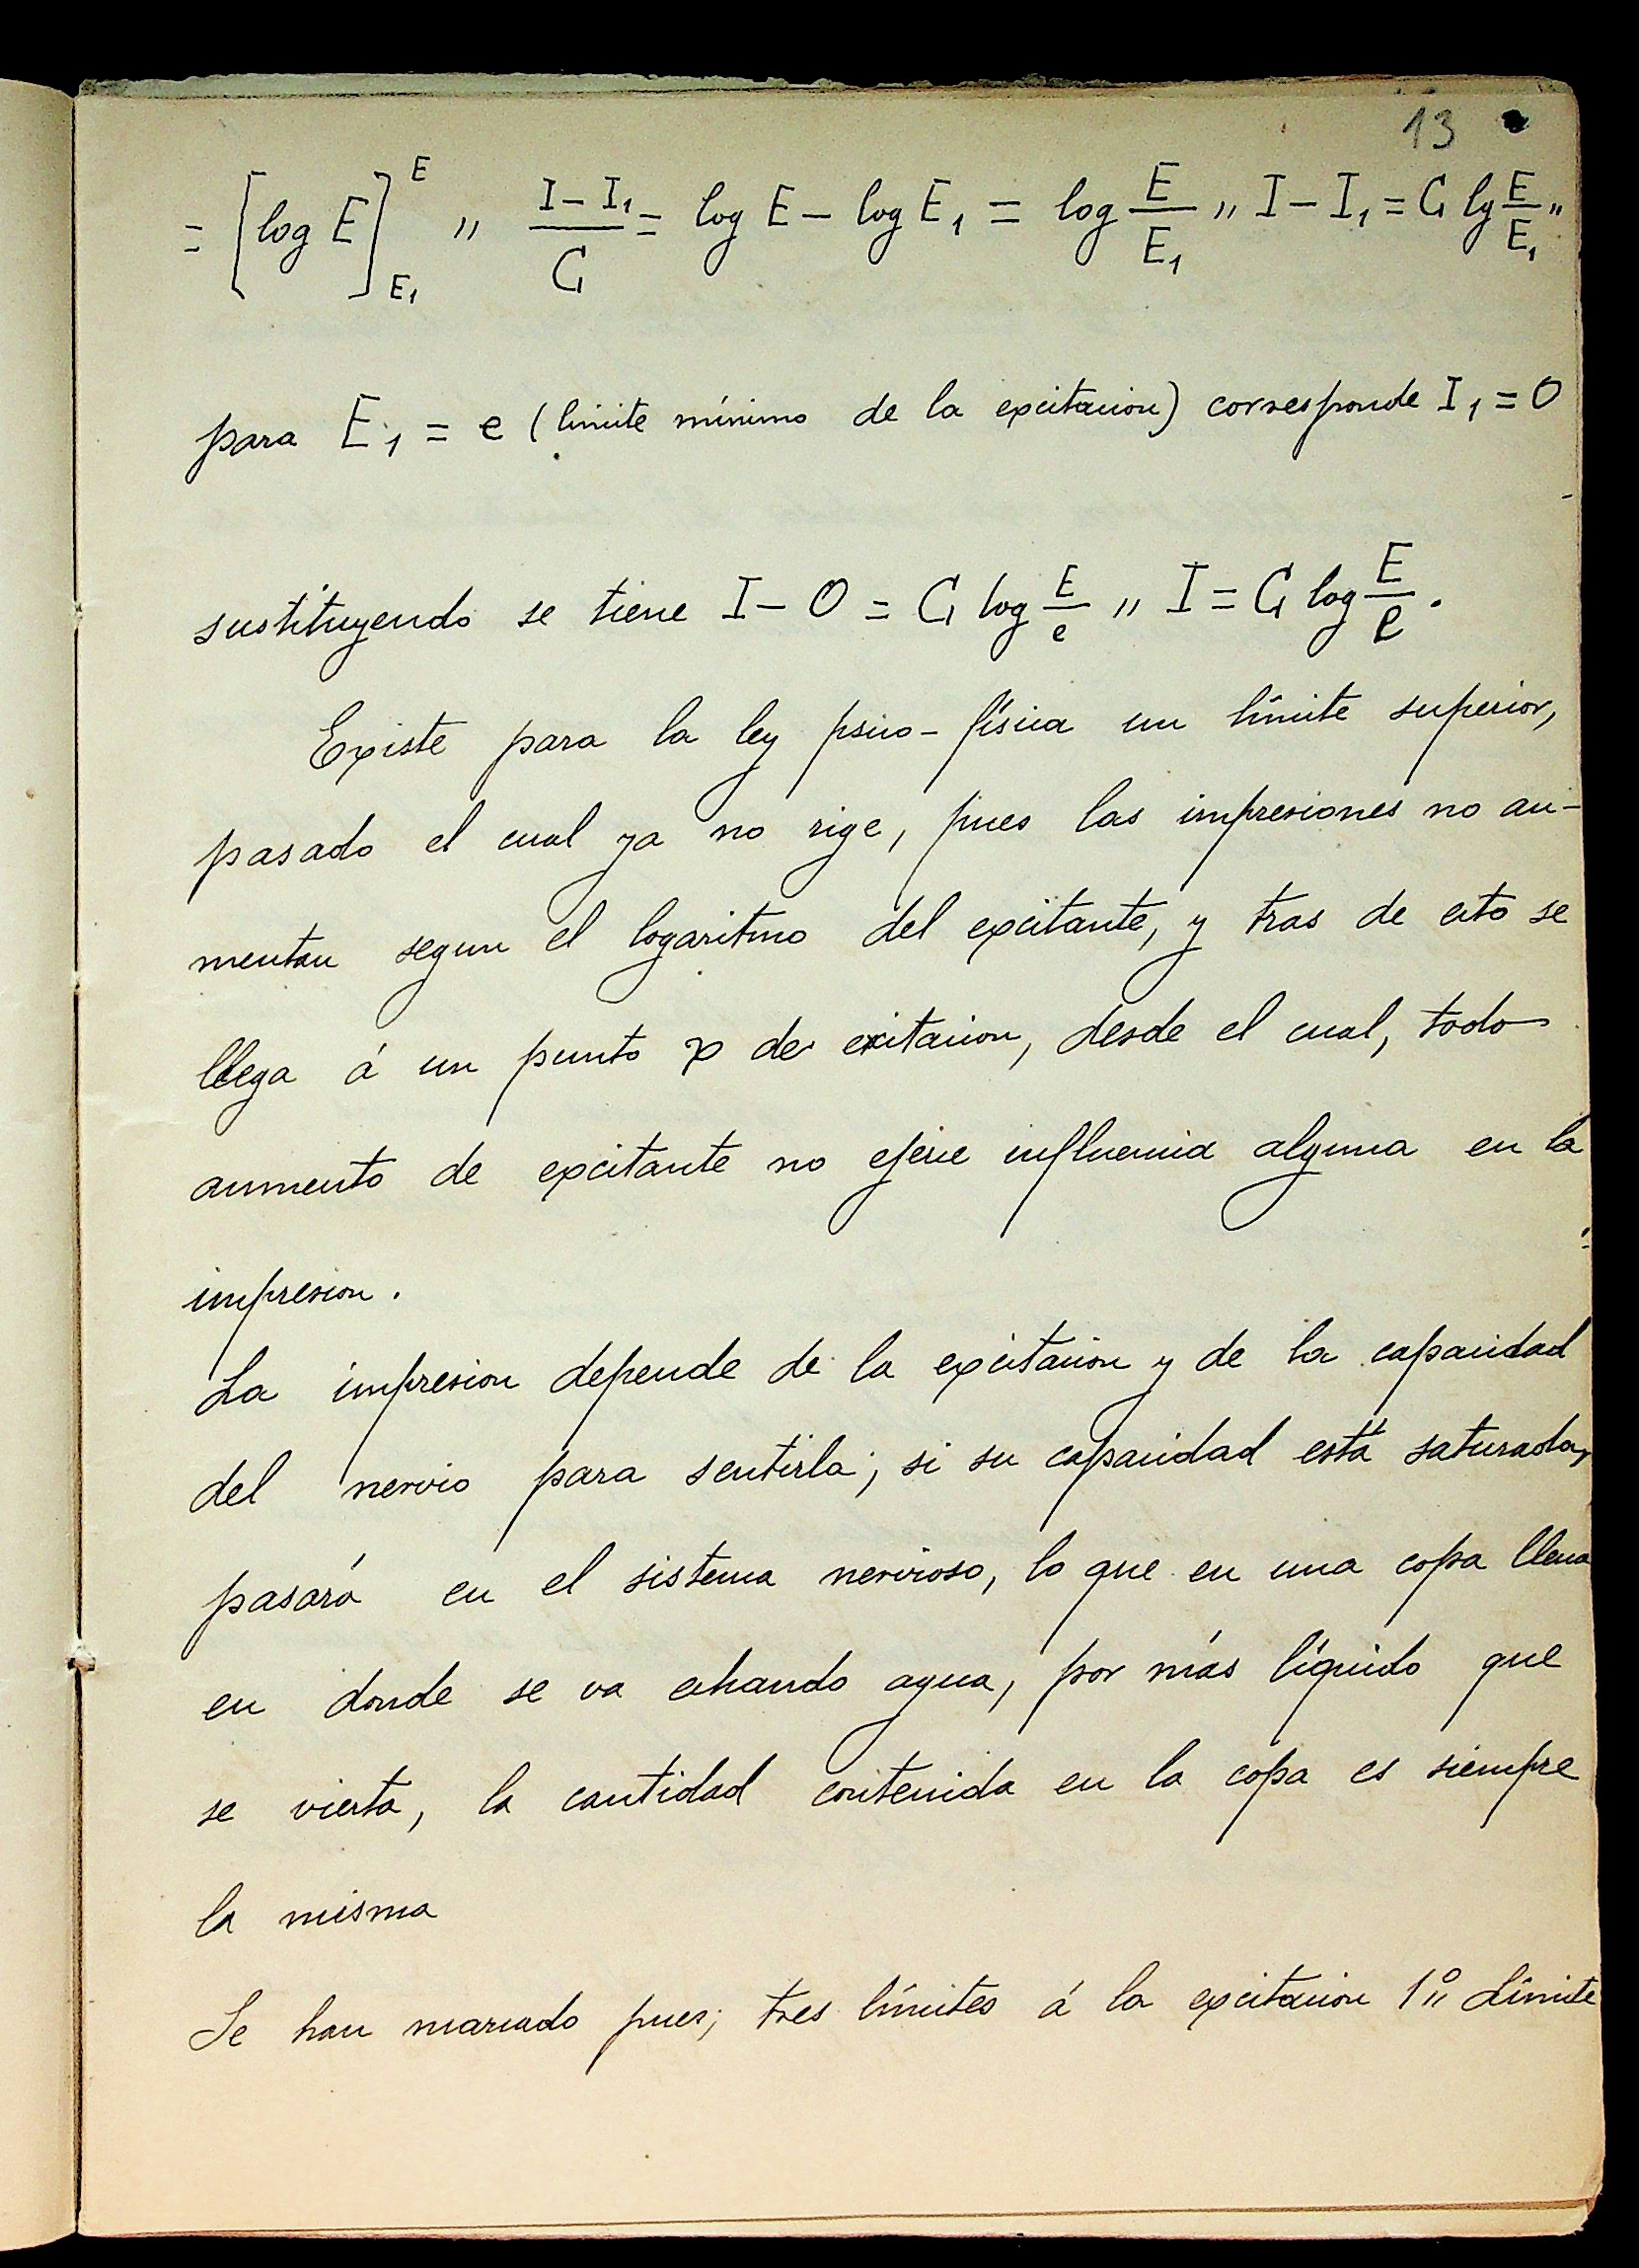 13
= [log E]_{E₁}^{E} „ (I − I₁)/C = log E − log E₁ = log E/E₁ „ I − I₁ = C lg E/E₁ „
para E₁ = e (limite mínimo de la excitacion) corresponde I₁ = 0
sustituyendo se tiene I − 0 = C log E/e „ I = C log E/e .
Existe para la ley psico-física un límite superior,
pasado el cual ya no rige, pues las impresiones no au-
mentan segun el logaritmo del excitante, y tras de esto se
llega á un punto x de exitacion, desde el cual, todo
aumento de excitante no ejerce influencia alguna en la
impresion .
La impresion depende de la excitacion y de la capacidad
del nervio para sentirla; si su capacidad está saturada,
pasará en el sistema nervioso, lo que en una copa llena
en donde se va echando agua, por más líquido que
se vierta, la cantidad contenida en la copa es siempre
la misma
Se han marcado pues; tres límites á la excitacion 1º„ Límite